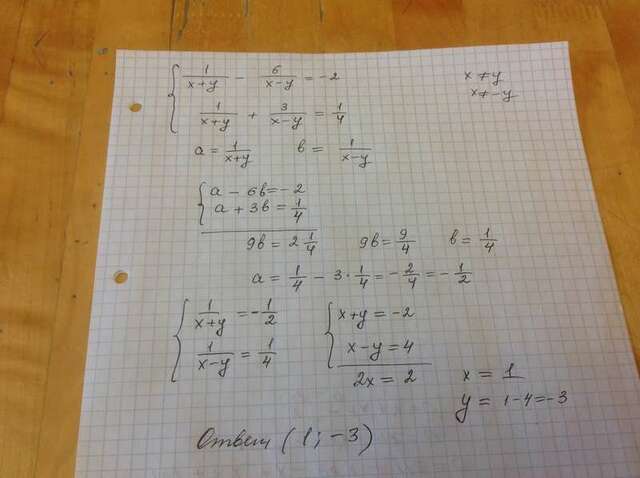 { 1/(x+y) - 6/(x-y) = -2
1/(x+y) + 3/(x-y) = 1/4
x ≠ y
x ≠ -y
a = 1/(x+y) b = 1/(x-y)
{ a - 6b = -2
a + 3b = 1/4
9b = 2 1/4 9b = 9/4 b = 1/4
a = 1/4 - 3 · 1/4 = -2/4 = -1/2
{ 1/(x+y) = -1/2
1/(x-y) = 1/4
{ x+y = -2
x-y = 4
2x = 2
x = 1
y = 1-4=-3
Ответ (1; -3)